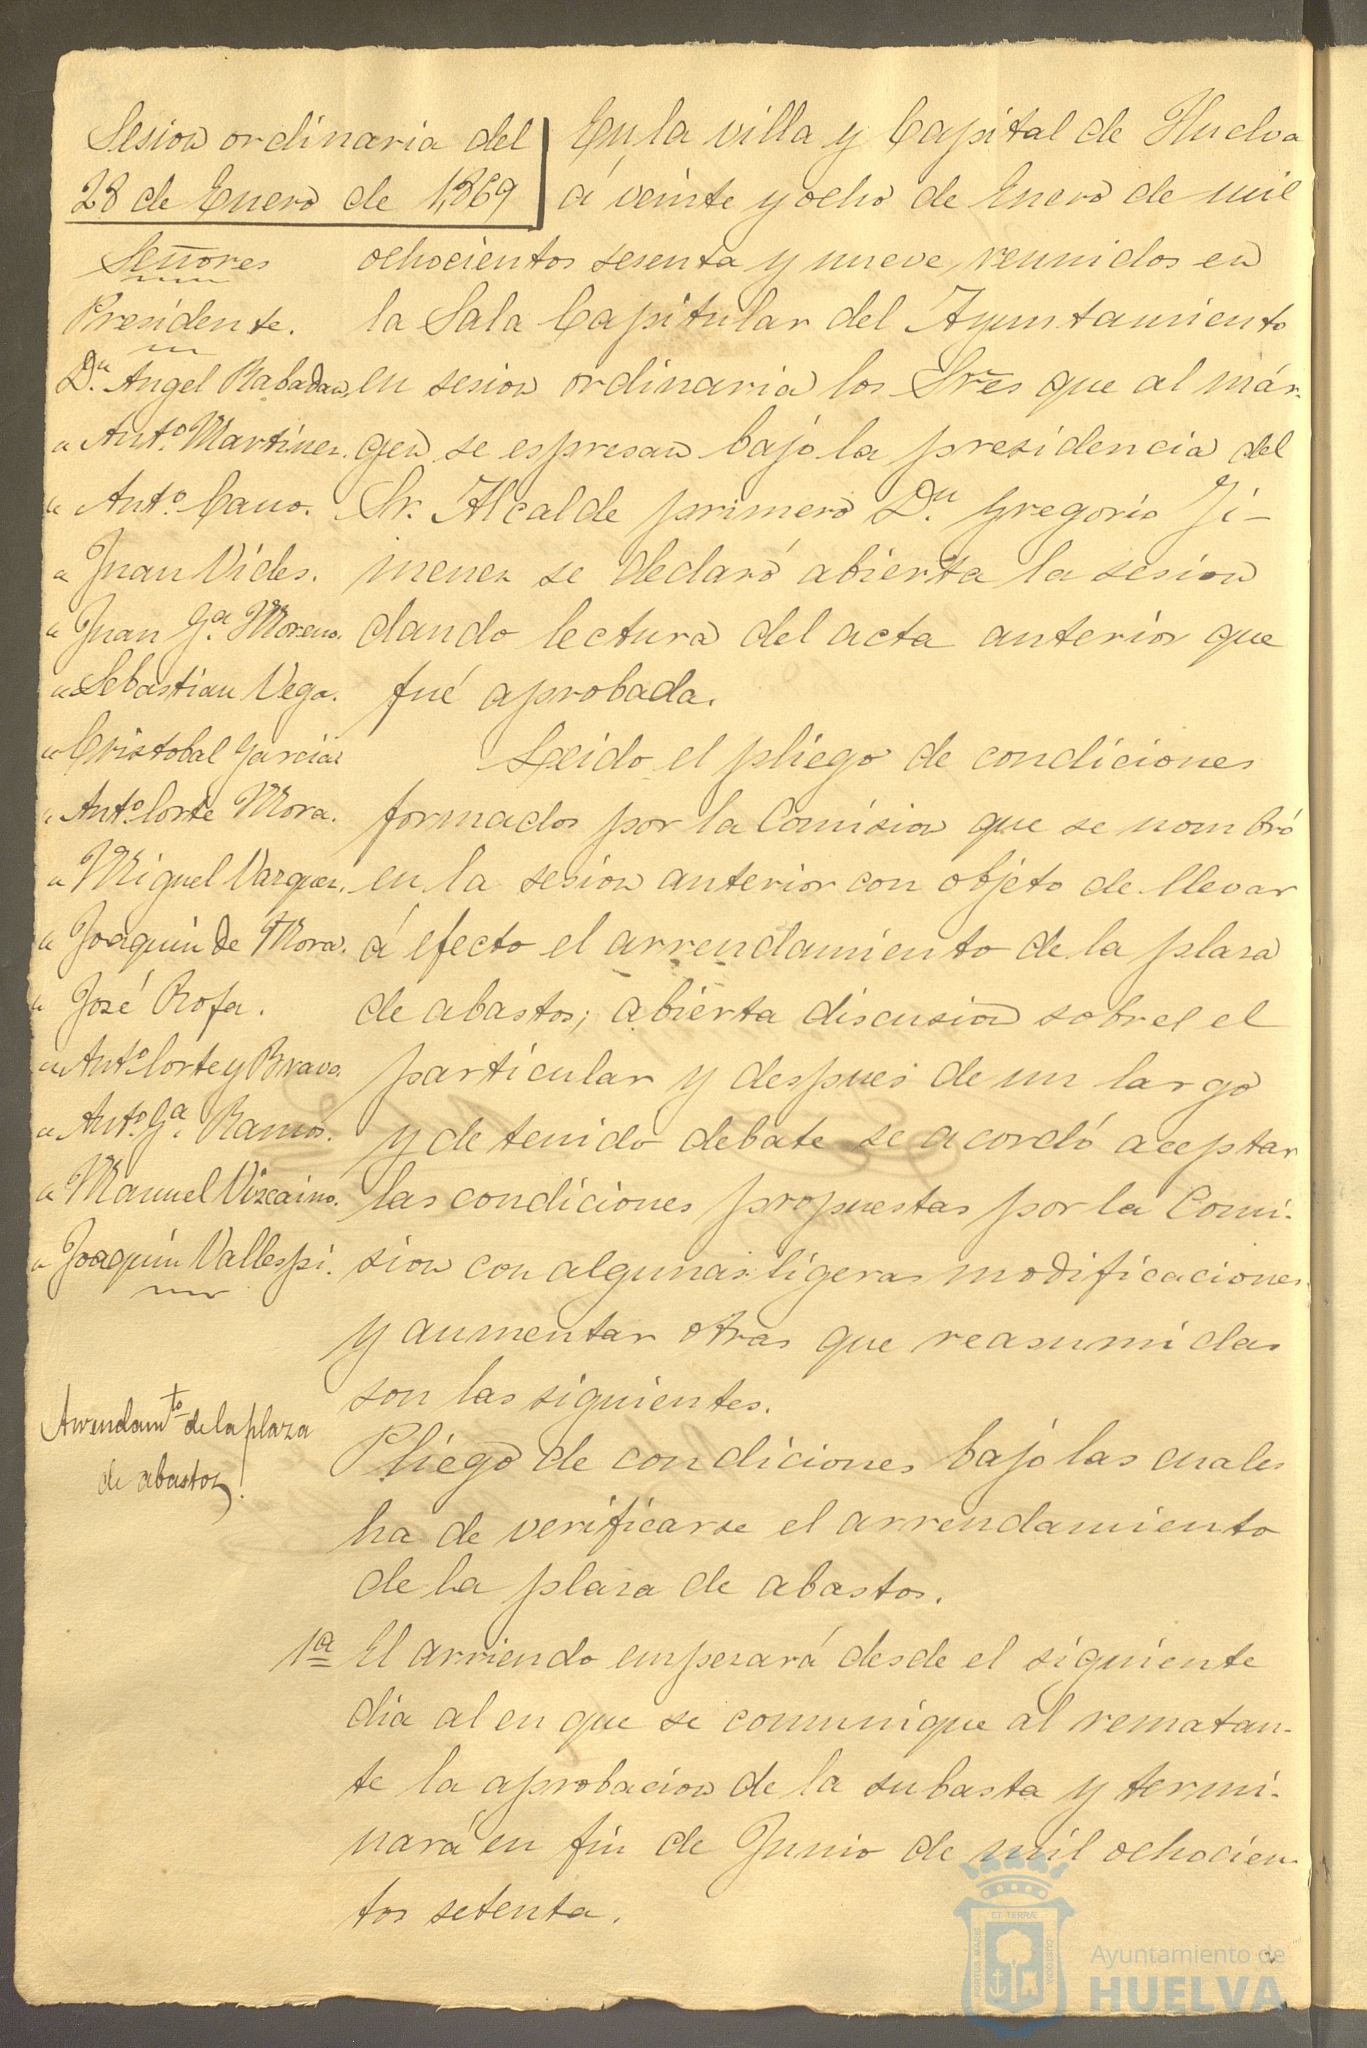 Sesion ordinaria del
28 de Enero de 1,869
Señores
Presidente.
Dn. Angel Rabadan,
" Anto. Martinez.
" Anto. Cano.
" Juan Vides.
" Juan Ga. Moreno.
" Sebastian Vega.
" Cristobal Garcia
" Anto. Corte Mora.
" Miguel Vazquez.
" Joaquin de Mora.
" José Rofa.
" Anto. Corte y Bravo.
" Anto. Ga. Ramos.
" Manuel Vizcaino.
" Joaquin Vallespi.
Arrendamto de la plaza
de abastos.
En la villa y Capital de Huelva
á veinte y ocho de Enero de mil
ochocientos sesenta y nueve, reunidos en
la Sala Capitular del Ayuntamiento
en sesion ordinaria los Sres que al már-
gen se espresan bajo la presidencia del
Sr. Alcalde primero Dn. Gregorio Ji-
menez se declaró abierta la sesion
dando lectura del acta anterior que
fué aprobada.
Leido el pliego de condiciones
formados por la Comision que se nombró
en la sesion anterior con objeto de llevar
á efecto el arrendamiento de la plaza
de abastos; abierta discusion sobre el el
particular y despues de un largo
y detenido debate se acordó aceptar
las condiciones propuestas por la Comi-
sion con algunas ligeras modificaciones
y aumentar otras que reasumidas
son las siguientes.
Pliego de condiciones bajo las cuales
ha de verificarse el arrendamiento
de la plaza de abastos.
1a El arriendo empezará desde el siguiente
dia al en que se comunique al rematan-
te la aprobacion de la subasta y termi-
nará en fin de Junio de mil ochocien-
tos setenta.
PORTUS MARIS
ET TERRÆ
CUSTODIA
Ayuntamiento de
HUELVA